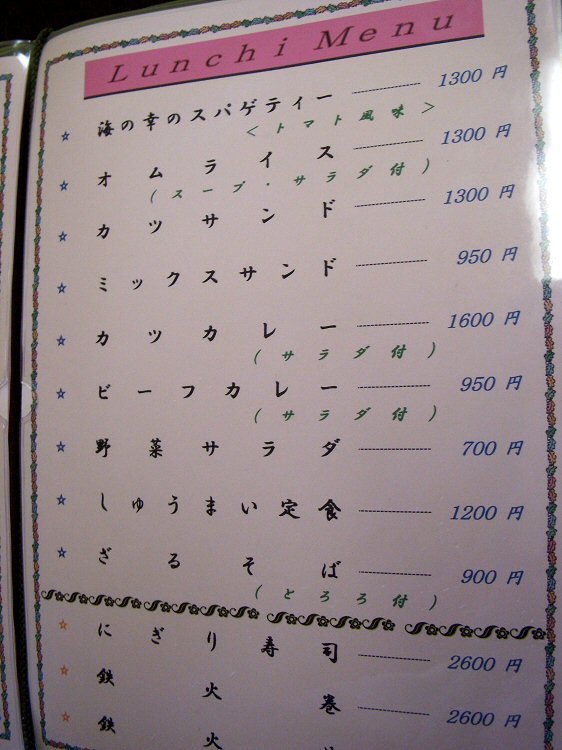 Lunchi Menu
☆ 海の幸のスパゲティー ---------- 1300 円
<トマト風味>
☆ オムライス ---------- 1300 円
(スープ・サラダ付)
☆ カツサンド ---------- 1300 円
☆ ミックスサンド ---------- 950 円
☆ カツカレー ---------- 1600 円
(サラダ付)
☆ ビーフカレー ---------- 950 円
(サラダ付)
☆ 野菜サラダ ---------- 700 円
☆ しゅうまい定食 ---------- 1200 円
☆ ざるそば ---------- 900 円
(とろろ付)
☆ にぎり寿司 ---------- 2600 円
☆ 鉄火巻 ---------- 2600 円
☆ 鉄火